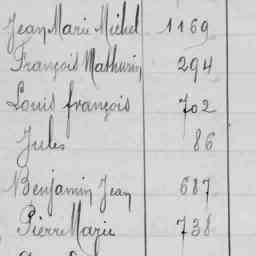 Jean Marie Michel 1169
François Mathurin 294
Louis françois 702
Jules 86
Benjamin Jean 687
Pierre Marie 738